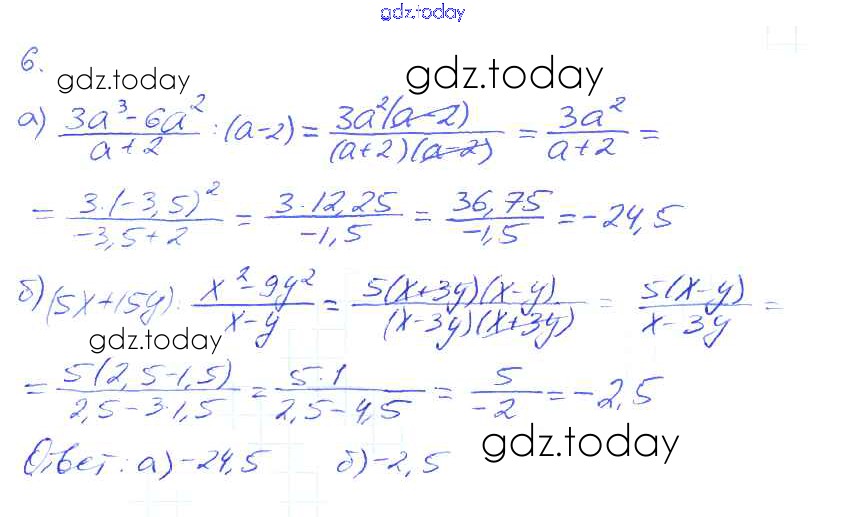 gdz.today
6.
gdz.today gdz.today
а) (3a³-6a²)/(a+2) : (a-2) = (3a²(a-2))/((a+2)(a-2)) = 3a²/(a+2) =
= (3·(-3,5)²)/(-3,5+2) = (3·12,25)/(-1,5) = 36,75/(-1,5) = -24,5
б) (5x+15y) : (x²-9y²)/(x-y) = (5(x+3y)(x-y))/((x-3y)(x+3y)) = (5(x-y))/(x-3y) =
gdz.today
= (5(2,5-1,5))/(2,5-3·1,5) = (5·1)/(2,5-4,5) = 5/(-2) = -2,5
Ответ: а) -24,5 б) -2,5
gdz.today